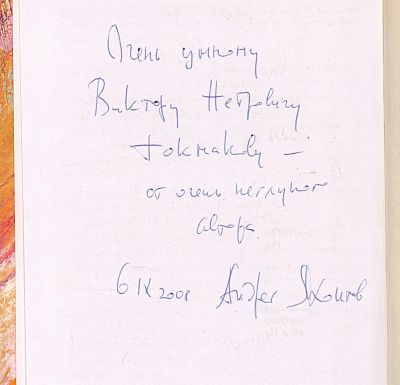 Очень умному
Виктору Петровичу
Токмакову —
от очень неглупого
автора.
6 IX 2008 Андрей Яхонтов